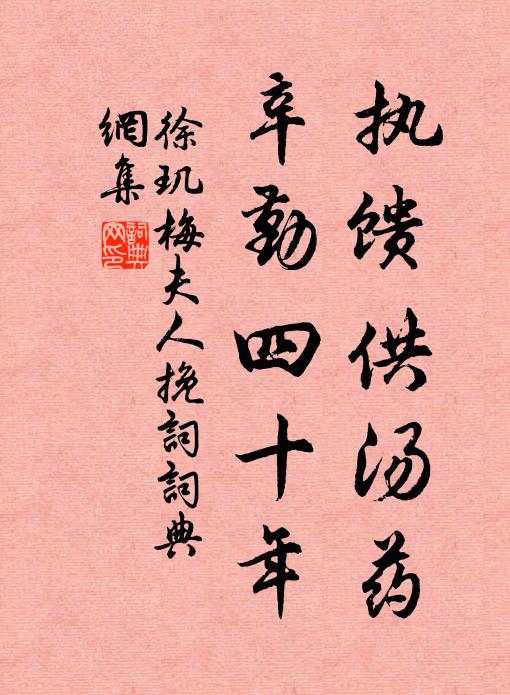 执馈供汤药
辛勤四十年
徐玑梅夫人挽词詞典
網集
詞典网印